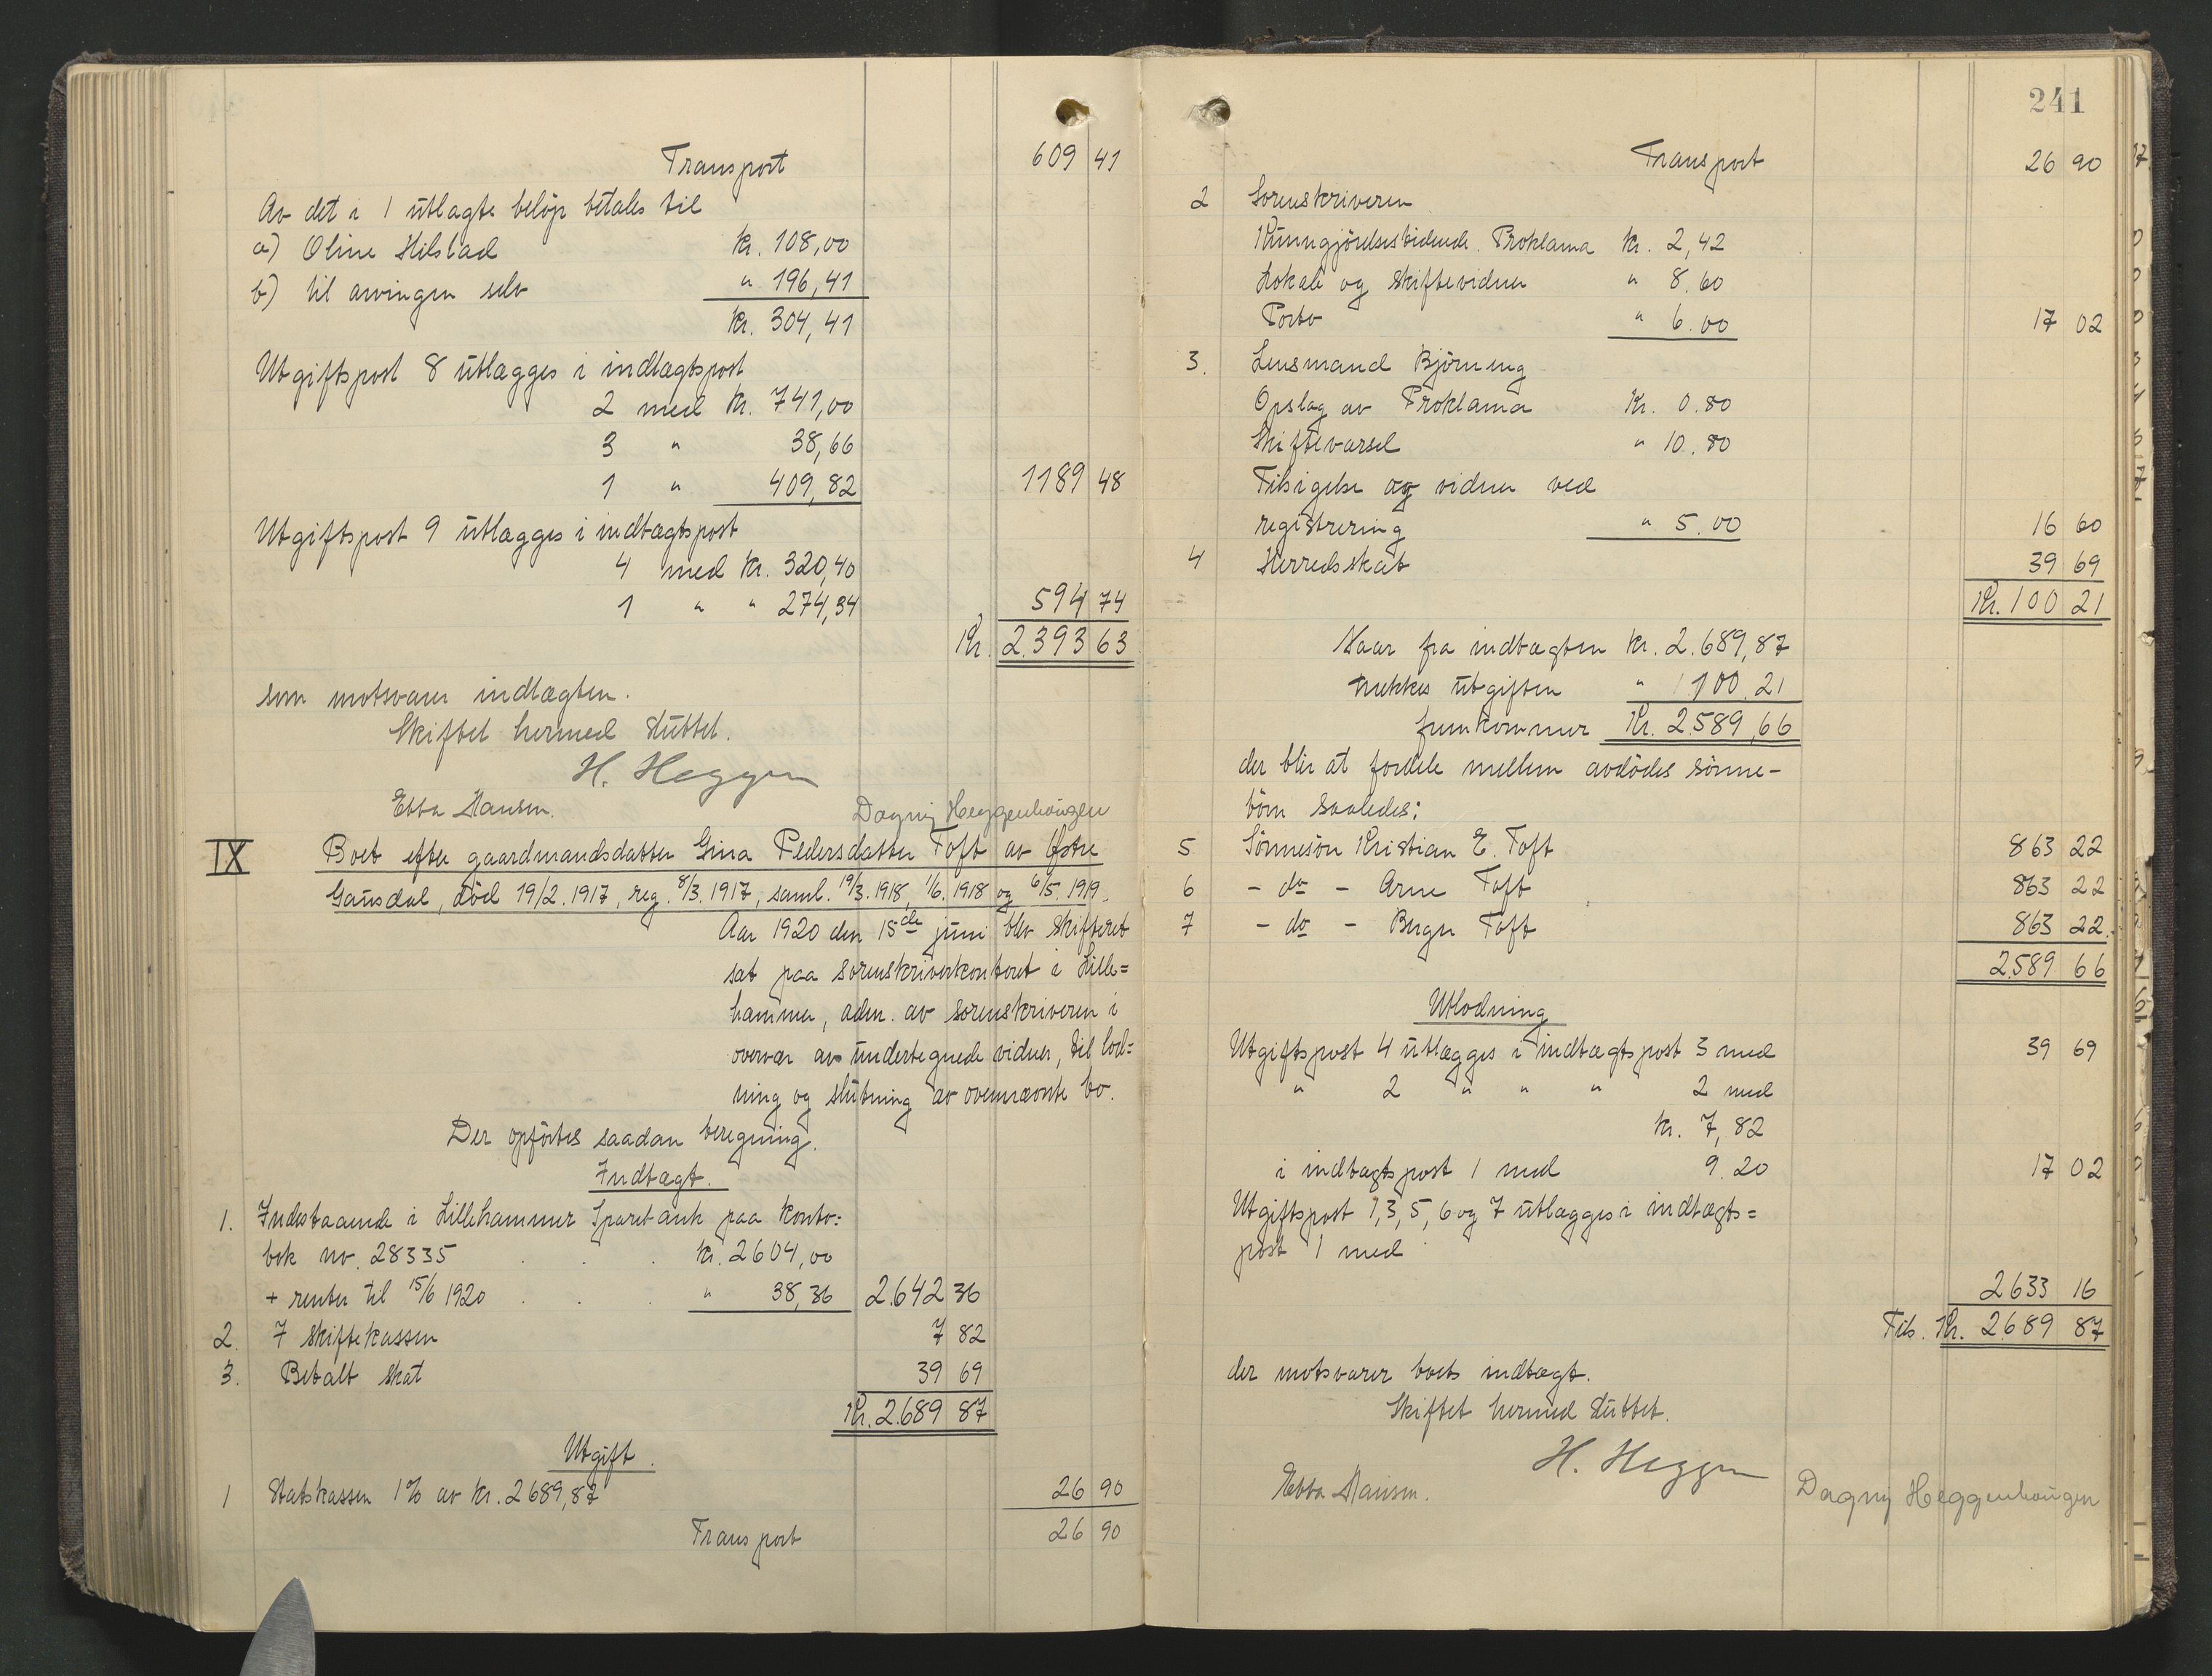 Transport 609 41
Av det i 1 utlagte beløp betales til
a) Oline Hilstad kr. 108,00
b) til arvingen selv " 196,41
kr. 304,41
Utgiftspost 8 utlægges i indtægtspost
2 med kr. 741,00
3 " 38,66
1 " 409,82 1189 48
Utgiftspost 9 utlægges i indtægtspost
4 med kr. 320,40
1 " " 274,34 594 74
Kr. 2.393 63
som motsvarer indtægten.
Skiftet hermed sluttet.
H. Heggen
Ebba Hansen. Dagny Heggenhougen
IX Boet efter gaardmandsdatter Gina Pedersdatter Toft av Østre
Gausdal, død 19/2. 1917, reg. 8/3. 1917, saml. 19/3. 1918, 1/6. 1918 og 6/5. 1919.
Aar 1920 den 15de juni blev skifteret
sat paa sorenskriverkontoret i Lille=
hammer, adm. av sorenskriveren i
overvær av undertegnede vidner, til lod=
ning og slutning av ovennævnte bo.
Der opførtes saadan beregning.
Indtægt.
1. Indestaaende i Lillehammer Sparebank paa konto=
bok no. 28335 . . . kr. 2604,00
+ renter til 15/6 1920 . . . " 38,36 2.642 36
2. I skiftekassen 7 82
3. Betalt skat 39 69
Kr. 2.689 87
Utgift.
1 Statskassen 1% av kr. 2689,87 26 90
Transport 26 90
241
Transport 26 90
2 Sorenskriveren
Kunngjørelsestidende. Proklama kr. 2,42
Lokale og skiftevidner " 8.60
Porto " 6.00 17 02
3. Lensmand Bjørning
Opslag av Proklama Kr. 0.80
Skiftevarsel " 10.80
Tilsigelse og vidner ved
registrering " 5.00 16 60
4 Herredsskat 39 69
Kr. 100 21
Naar fra indtægten kr. 2.689,87
trækkes utgiften " 100.21
fremkommer Kr. 2.589,66
der blir at fordele mellem avdødes sønne-
børn saaledes:
5 Sønnesøn Kristian E. Toft 863 22
6 - do - Arne Toft 863 22
7 - do - Birger Toft 863 22.
2.589 66
Utlodning
Utgiftspost 4 utlægges i indtægtspost 3 med 39 69
" 2 " " " 2 med
kr. 7,82
i indtægtspost 1 med 9.20 17 02
Utgiftspost 1, 3, 5, 6 og 7 utlægges i indtægts=
post 1 med
2633 16
Tils. Kr. 2689 87
der motsvarer boets indtægt.
Skiftet hermed sluttet.
H. Heggen
Ebba Hansen. Dagny Heggenhougen